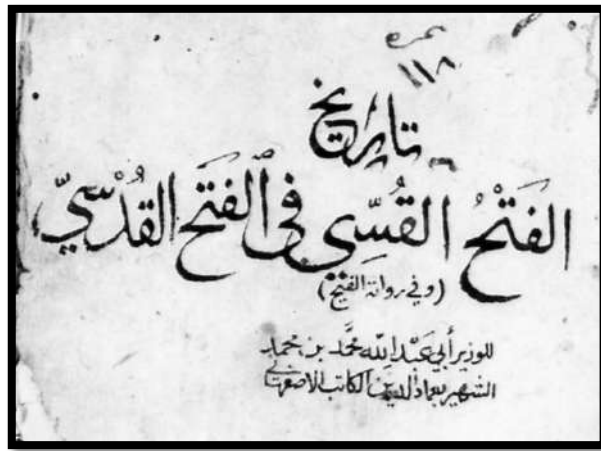 نمره
١١٨
تاريخ
الفَتْحُ القُسِّي فى الفَتَح القُدْسِيّ
(وفي رواية الفتح)
للوزير أبي عَبْد الله محَّمد بن محمد
الشهير بعماد الدين الكاتب الأصفهاني